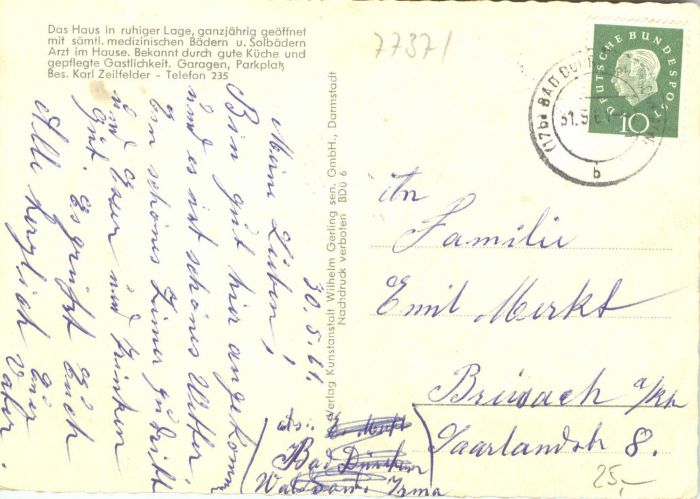 Das Haus in ruhiger Lage, ganzjährig geöffnet
mit sämtl. medizinischen Bädern u. Solbädern
Arzt im Hause. Bekannt durch gute Küche und
gepflegte Gastlichkeit. Garagen, Parkplatz
Bes. Karl Zeilfelder - Telefon 235
77371
DEUTSCHE BUNDESPOST
10
(17b) BAD
b
30.5.61.
Meine Lieben,
Bin gut hier angekomm
und es ist schönes Wetter.
ein schönes Zimer
und Essen und Trinken
Gut. Es grüßt Euch
Alle herzlich Euer
Vater.
Verlag Kunstanstalt Wilhelm Gerling sen. GmbH., Darmstadt
Nachdruck verboten BDü 6
An
Familie
Emil Merkt
Breisach a/Rh
Saarlandstr 8.
Abs: E. Merkt
Bad Dürrheim
Irma
25,-